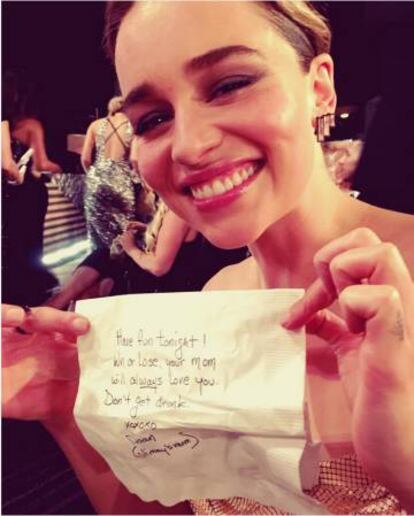 Have fun tonight!
Win or lose, your mom
will always love you.
Don't get drunk.
xoxoxo
Susan
(Jimmy's mom)